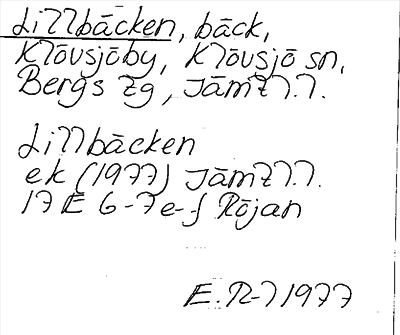 Lillbäcken, bäck,
Klövsjöby, Klövsjö sn,
Bergs tg, Jämtl.l.
Lillbäcken
ek (1977) Jämtl.l.
17 E 6-7e-f Röjan
E.R-l 1977